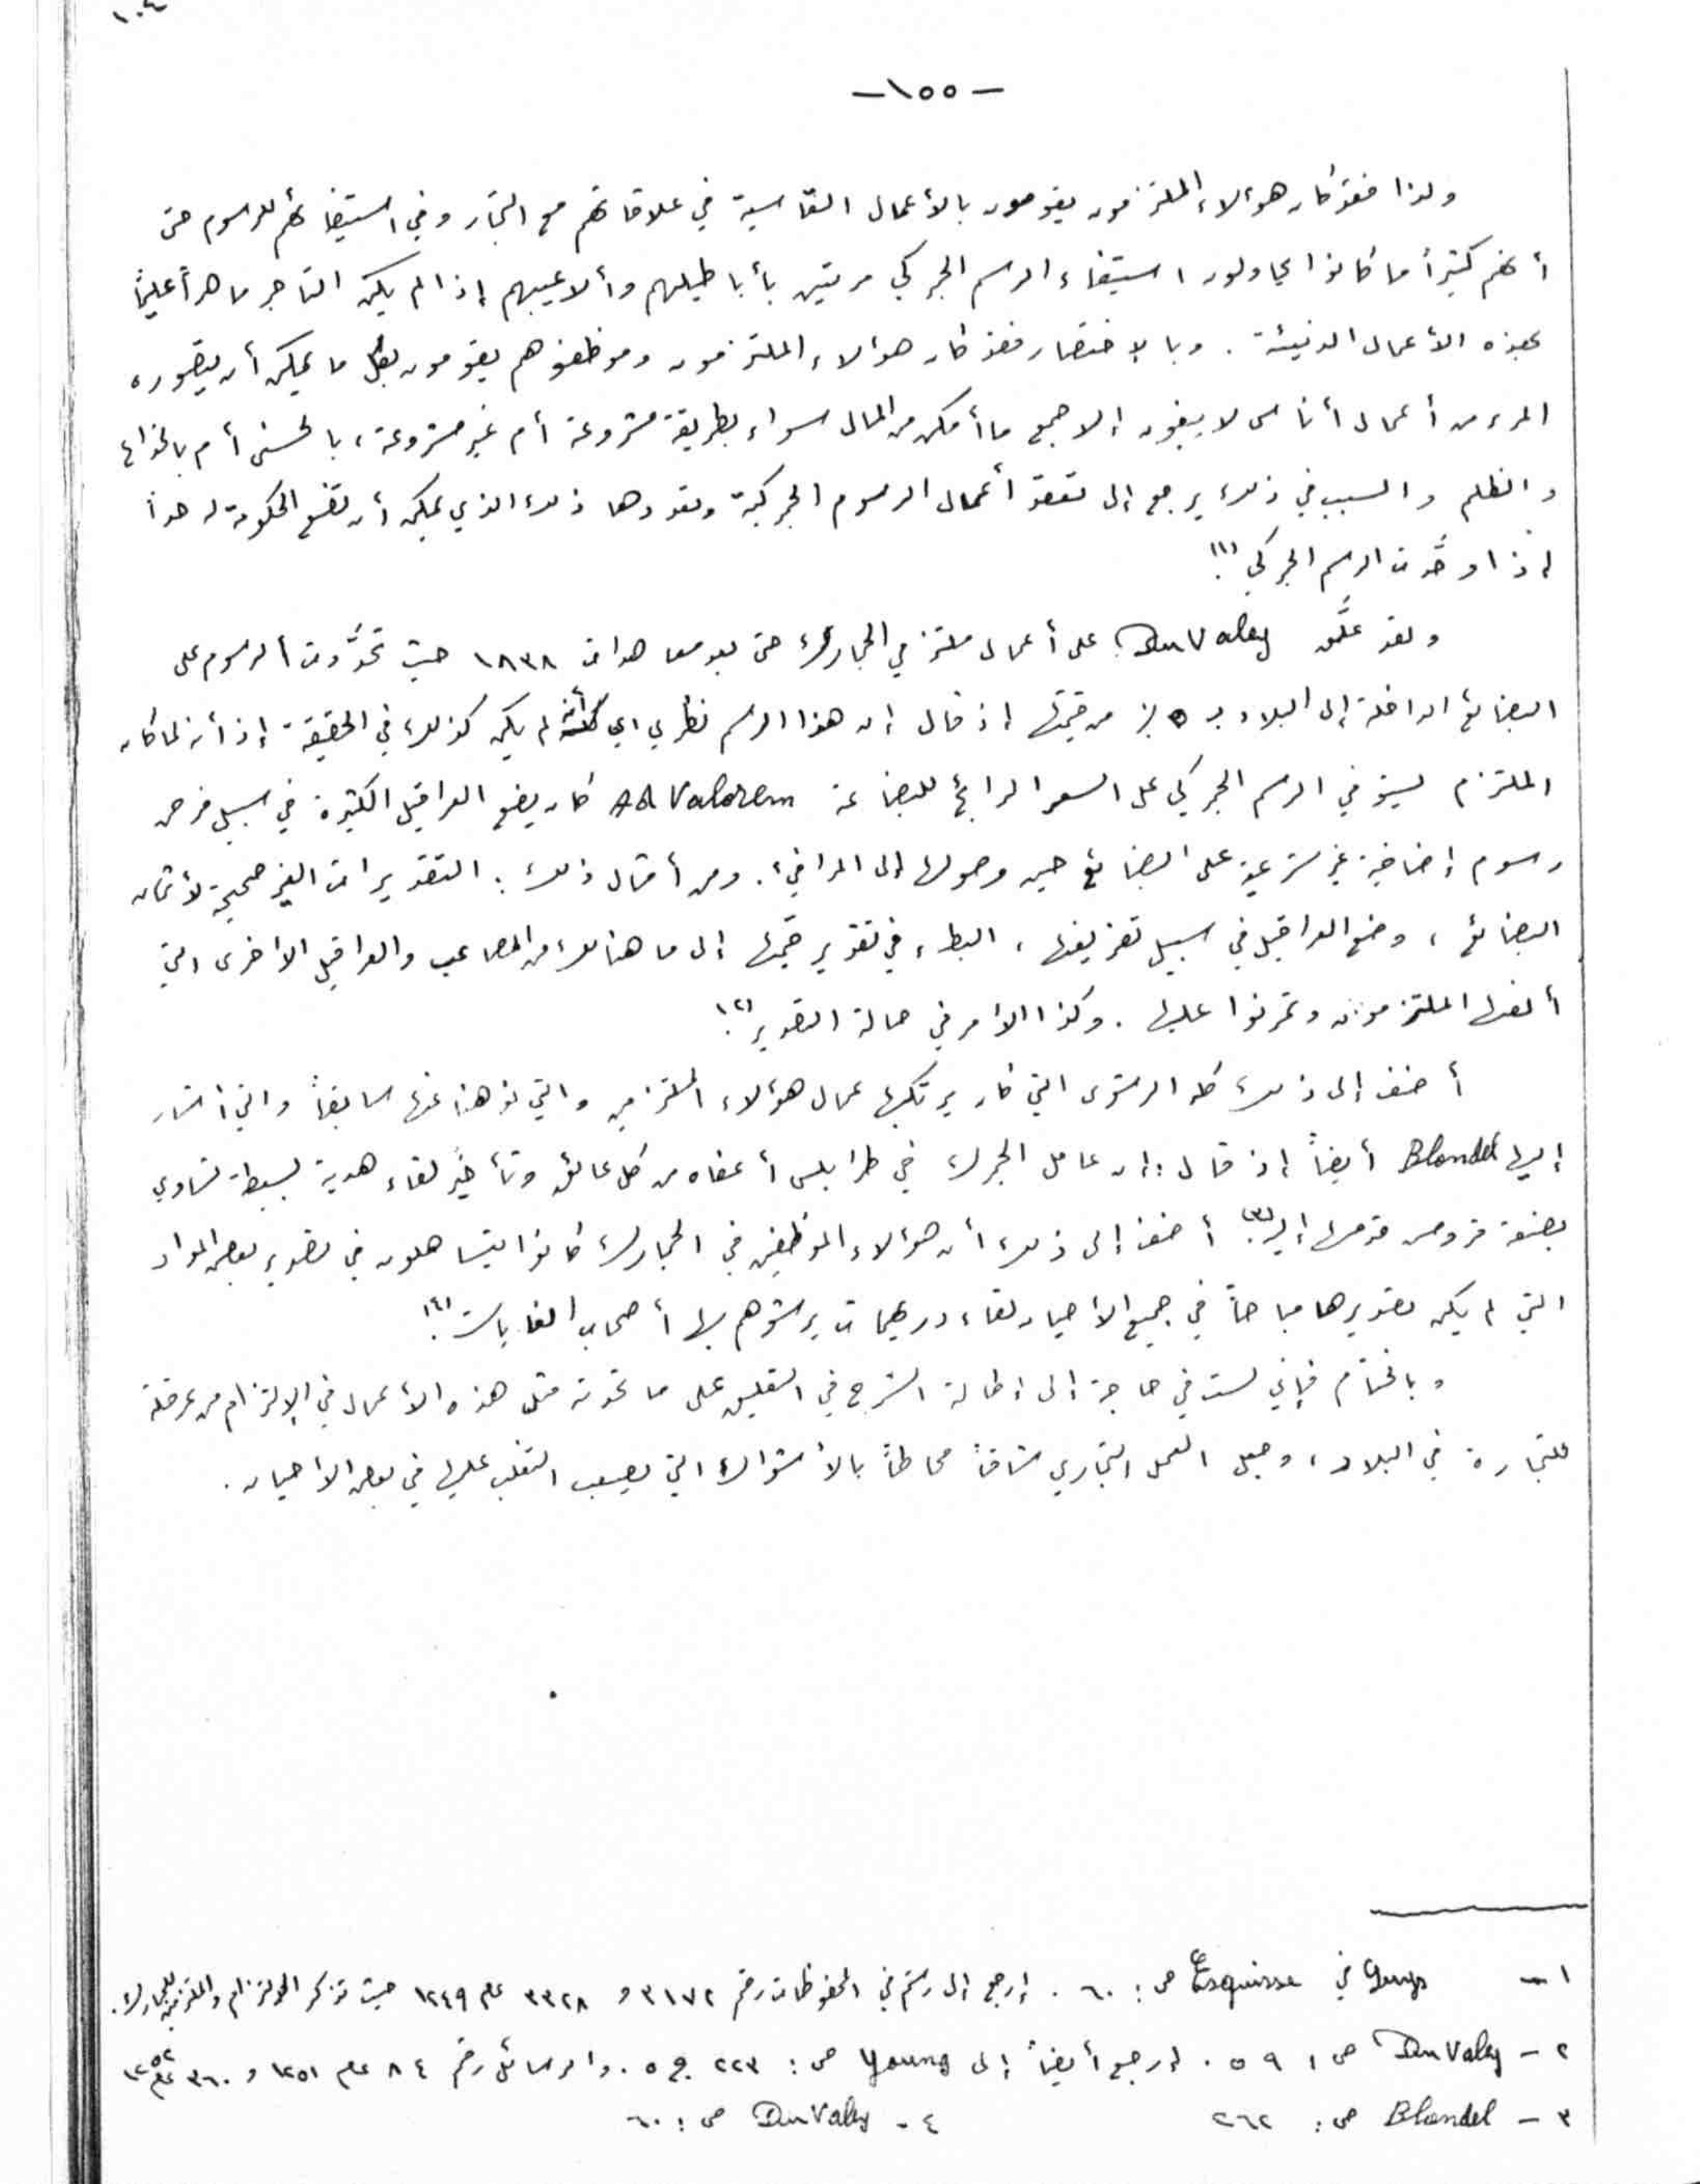 ١٠٤
-١٥٥-
ولذا فقد كان هؤلاء الملتزمون يقومون بالأعمال القاسية في علاقاتهم مع التجار وفي استيفائهم للرسوم حتى
أنهم كثيراً ما كانوا يحاولون استيفاء الرسم الجمركي مرتين بأباطيلهم وألاعيبهم إذا لم يكن التاجر ماهراً عليماً
بهذه الأعمال الدنيئة . وبالإختصار فقد كان هؤلاء الملتزمون وموظفوهم يقومون بكل ما يمكن أن يتصوره
المرء من أعمال أناس لا يبغون إلا جمع ما أمكن من المال سواء بطريقة مشروعة أم غير مشروعة ، بالحسنى أم بالخداع
والظلم والسبب في ذلك يرجع إلى تعقد أعمال الرسوم الجمركية وتعددها ذلك الذي يمكن أن تضع الحكومة له حداً
إذا وحَّدت الرسم الجمركي (١).
ولقد علَّق Du Valey على أعمال ملتزمي الجمارك حتى بعد معاهدات ١٨٣٨ حيث تحدَّدت الرسوم على
البضائع الداخلة إلى البلاد بـ ٥٪ من قيمتها إذ قال إن هذا الرسم نظري اي أنه لم يكن كذلك في الحقيقة إذ أنه لما كان
الملتزم يستوفي الرسم الجمركي على السعر الرائج للبضاعة Ad Valorem كان يضع العراقيل الكثيرة في سبيل فرض
رسوم إضافية غير شرعية على البضائع حين وصولها إلى المرافيء . ومن أمثال ذلك : التقديرات الغير صحيحة لأثمان
البضائع ، وضع العراقيل في سبيل تعريفها ، البطء في تقدير قيمتها إلى ما هنالك من المصاعب والعراقيل الاخرى التي
ألفها الملتزمون وتمرنوا عليها . وكذا الأمر في حالة التصدير (٢).
أضف إلى ذلك كله الرشوى التي كان يرتكبها عمال هؤلاء الملتزمين والتي نوهنا عنها سابقاً والتي أشار
إليها Blondel أيضاً إذ قال : إن عامل الجمرك في طرابلس أعفاه من كل عائق وتأخير لقاء هدية بسيطة تساوي
بضعة قروش قدمها إليه (٣). أضف إلى ذلك أن هؤلاء الموظفين في الجمارك كانوا يتساهلون في تصدير بعض المواد
التي لم يكن تصديرها مباحاً في جميع الأحيان لقاء دريهمات يرشوهم بها أصحاب الغايات (٤).
وبالختام فإني لست في حاجة إلى إطالة الشرح في التعليق على ما تحدثه مثل هذه الأعمال في الإلتزام من عرقلة
للتجارة في البلاد ، وجعل العمل التجاري شاقاً محاطاً بالأشواك التي يصعب التغلب عليها في بعض الأحيان .
١ - Guys في Esquisse ص : ٦٠ . إرجع إلى رستم في المحفوظات رقم ٣١٧٢ و ٣٣٢٨ عام ١٢٤٩ حيث تذكر الإلتزام والملتزمين للجمارك .
٢ - Du Valey ص ٥٩ . إرجع أيضاً إلى Young ص : ٢٢٣ ج ٥ . والرسائل رقم ٨٤ عام ١٢٥١ و ٣٦٠ عام ١٢٥٢
٣ - Blondel ص : ٢٦٢ ٤ - Du Valey ص : ٦٠